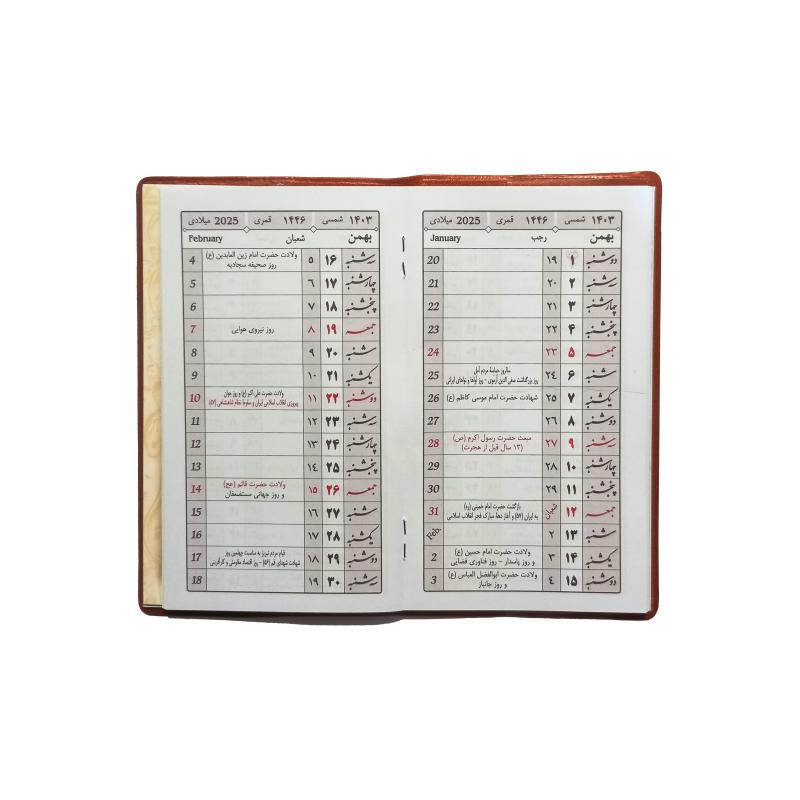 ۱۴۰۳ شمسی ۱۴۴۶ قمری 2025 میلادی
بهمن رجب January
دوشنبه ۱ ۱۹ 20
سه‌شنبه ۲ ۲۰ 21
چهارشنبه ۳ ۲۱ 22
پنجشنبه ۴ ۲۲ 23
جمعه ۵ ۲۳ 24
شنبه ۶ ۲۴ سالروز حماسهٔ مردم آمل 25
روز بزرگداشت صفی الدین اُرموی - روز آواها و نواهای ایرانی
یکشنبه ۷ ۲۵ شهادت حضرت امام موسی کاظم (ع) 26
دوشنبه ۸ ۲۶ 27
سه‌شنبه ۹ ۲۷ مبعث حضرت رسول اکرم (ص) 28
(۱۳ سال قبل از هجرت)
چهارشنبه ۱۰ ۲۸ 29
پنجشنبه ۱۱ ۲۹ 30
جمعه ۱۲ شعبان بازگشت حضرت امام خمینی (ره) 31
به ایران (۵۷) و آغاز دههٔ مبارک فجر انقلاب اسلامی
شنبه ۱۳ ۲ Feb.
یکشنبه ۱۴ ۳ ولادت حضرت امام حسین (ع) 2
و روز پاسدار - روز فناوری فضایی
دوشنبه ۱۵ ۴ ولادت حضرت ابوالفضل العباس (ع) 3
و روز جانباز
۱۴۰۳ شمسی ۱۴۴۶ قمری 2025 میلادی
بهمن شعبان February
سه‌شنبه ۱۶ ۵ ولادت حضرت امام زین العابدین (ع) 4
روز صحیفه سجادیه
چهارشنبه ۱۷ ۶ 5
پنجشنبه ۱۸ ۷ 6
جمعه ۱۹ ۸ روز نیروی هوایی 7
شنبه ۲۰ ۹ 8
یکشنبه ۲۱ ۱۰ 9
دوشنبه ۲۲ ۱۱ ولادت حضرت علی اکبر (ع) و روز جوان 10
پیروزی انقلاب اسلامی ایران و سقوط نظام شاهنشاهی (۵۷)
سه‌شنبه ۲۳ ۱۲ 11
چهارشنبه ۲۴ ۱۳ 12
پنجشنبه ۲۵ ۱۴ 13
جمعه ۲۶ ۱۵ ولادت حضرت قائم (عج) 14
و روز جهانی مستضعفان
شنبه ۲۷ ۱۶ 15
یکشنبه ۲۸ ۱۷ 16
دوشنبه ۲۹ ۱۸ قیام مردم تبریز به مناسبت چهلمین روز 17
شهادت شهدای قم (۵۶) - روز اقتصاد مقاومتی و کارآفرینی
سه‌شنبه ۳۰ ۱۹ 18